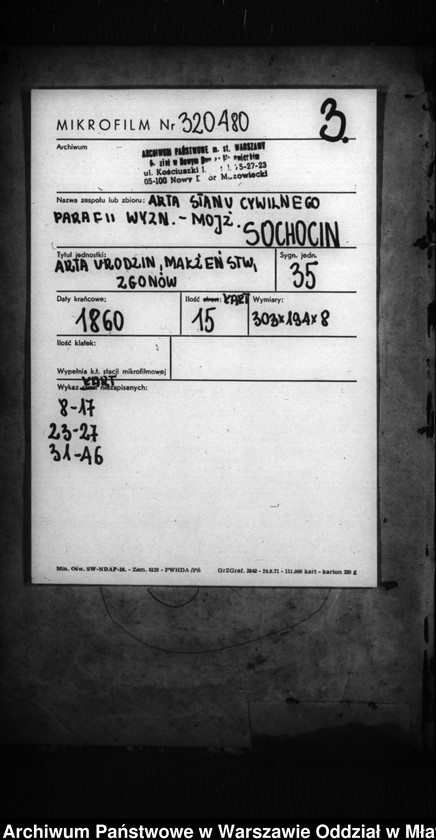 3.
MIKROFILM Nr 320480
Archiwum
ARCHIWUM PAŃSTWOWE m. st. WARSZAWY
ul. Kościuszki
05-100 Nowy Mazowiecki
Nazwa zespołu lub zbioru: AKTA STANU CYWILNEGO
PARAFII WYZN. - MOJŻ.
SOCHOCIN
Tytuł jednostki:
AKTA URODZIN, MAŁŻEŃSTW,
ZGONÓW
Sygn. jedn.
35
Daty krańcowe:
1860
Ilość stron: KART
15
Wymiary:
303x194x8
Ilość klatek:
Wypełnia k.t. stacji mikrofilmowej
KART
Wykaz niezapisanych:
8-17
23-27
31-46
Min. Ośw. SW-NDAP-26. - Zam. 6125 - PWRDA/Pó GrZGraf. 2842 - 24.8.71 - 111.000 kart - karton 220 g
Archiwum Państwowe w Warszawie Oddział w Mła